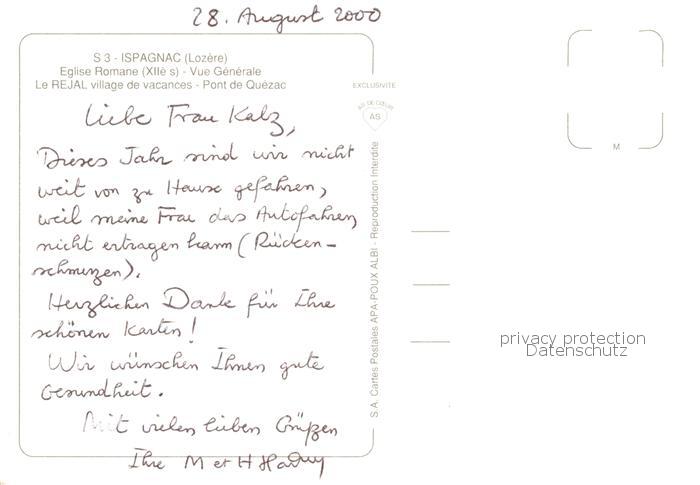 28. August 2000
S 3 - ISPAGNAC (Lozère)
Eglise Romane (XIIè s) - Vue Générale
Le REJAL village de vacances - Pont de Quézac
EXCLUSIVITE
AS DE CŒUR
AS
Liebe Frau Kalz,
Dieses Jahr sind wir nicht
weit von zu Hause gefahren,
weil meine Frau das Autofahren
nicht ertragen kann (Rücken-
schmerzen).
Herzlichen Dank für Ihre
schönen Karten!
Wir wünschen Ihnen gute
Gesundheit.
Mit vielen lieben Grüßen
Ihre M et H
S.A. Cartes Postales APA-POUX ALBI - Reproduction Interdite
M
privacy protection
Datenschutz